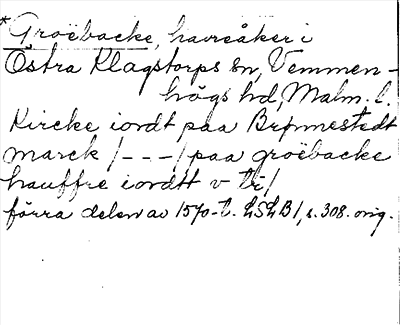 *Groëbacke, havreåker i
Östra Klagstorps sn, Vemmen-
högs hd, Malm. l.
Kircke iordt paa Brønnestedt
marck /---/ paa groëbacke
hauffre iordtt v tr/
förra delen av 1570-t. LSLB1, s. 308. orig.